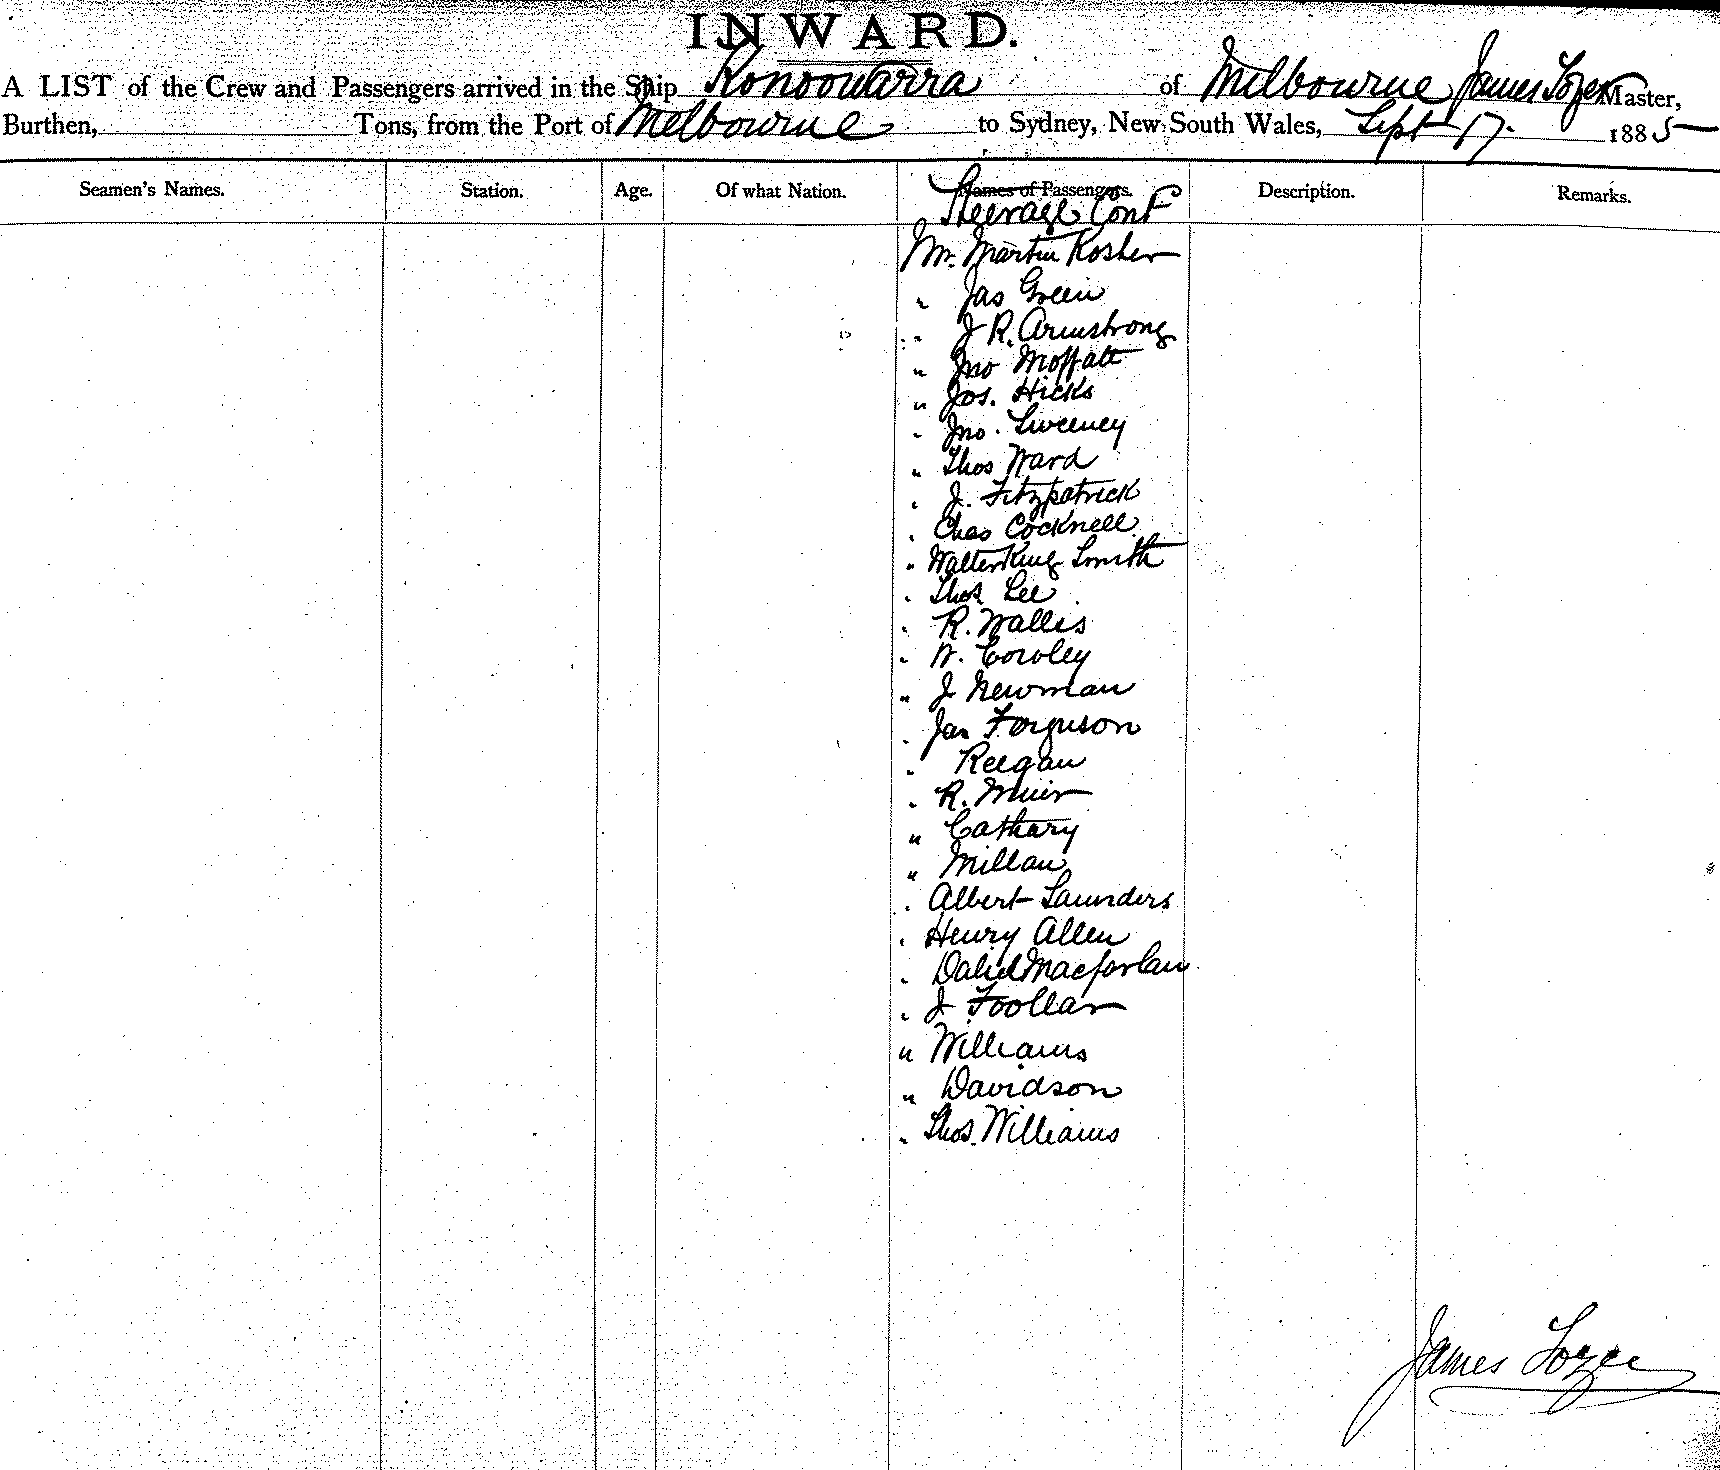 INWARD.
A LIST of the Crew and Passengers arrived in the Ship Konoowarra of Melbourne James Tozer Master,
Burthen, Tons, from the Port of Melbourne to Sydney, New South Wales, Sept 17. 1885
Seamen's Names. Station. Age. Of what Nation. Names of Passengers. Description. Remarks.
Steerage Cont
Mr. Martin Kosher
" Jas Green
" J R. Armstrong
" Jno Moffatt
" Jos. Hicks
" Jno. Sweeney
" Thos Ward
" J. Fitzpatrick
" Chas Cocknell
" Walter King Smith
" Thos Lee
" R. Wallis
" W. Cowley
" J Newman
" Jas Ferguson
" Reegan
" R. Muir
" Cathary
" Millan
" Albert Saunders
" Henry Allen
" David Macfarlan
" J Foollar
" Williams
" Davidson
" Thos. Williams
James Tozer